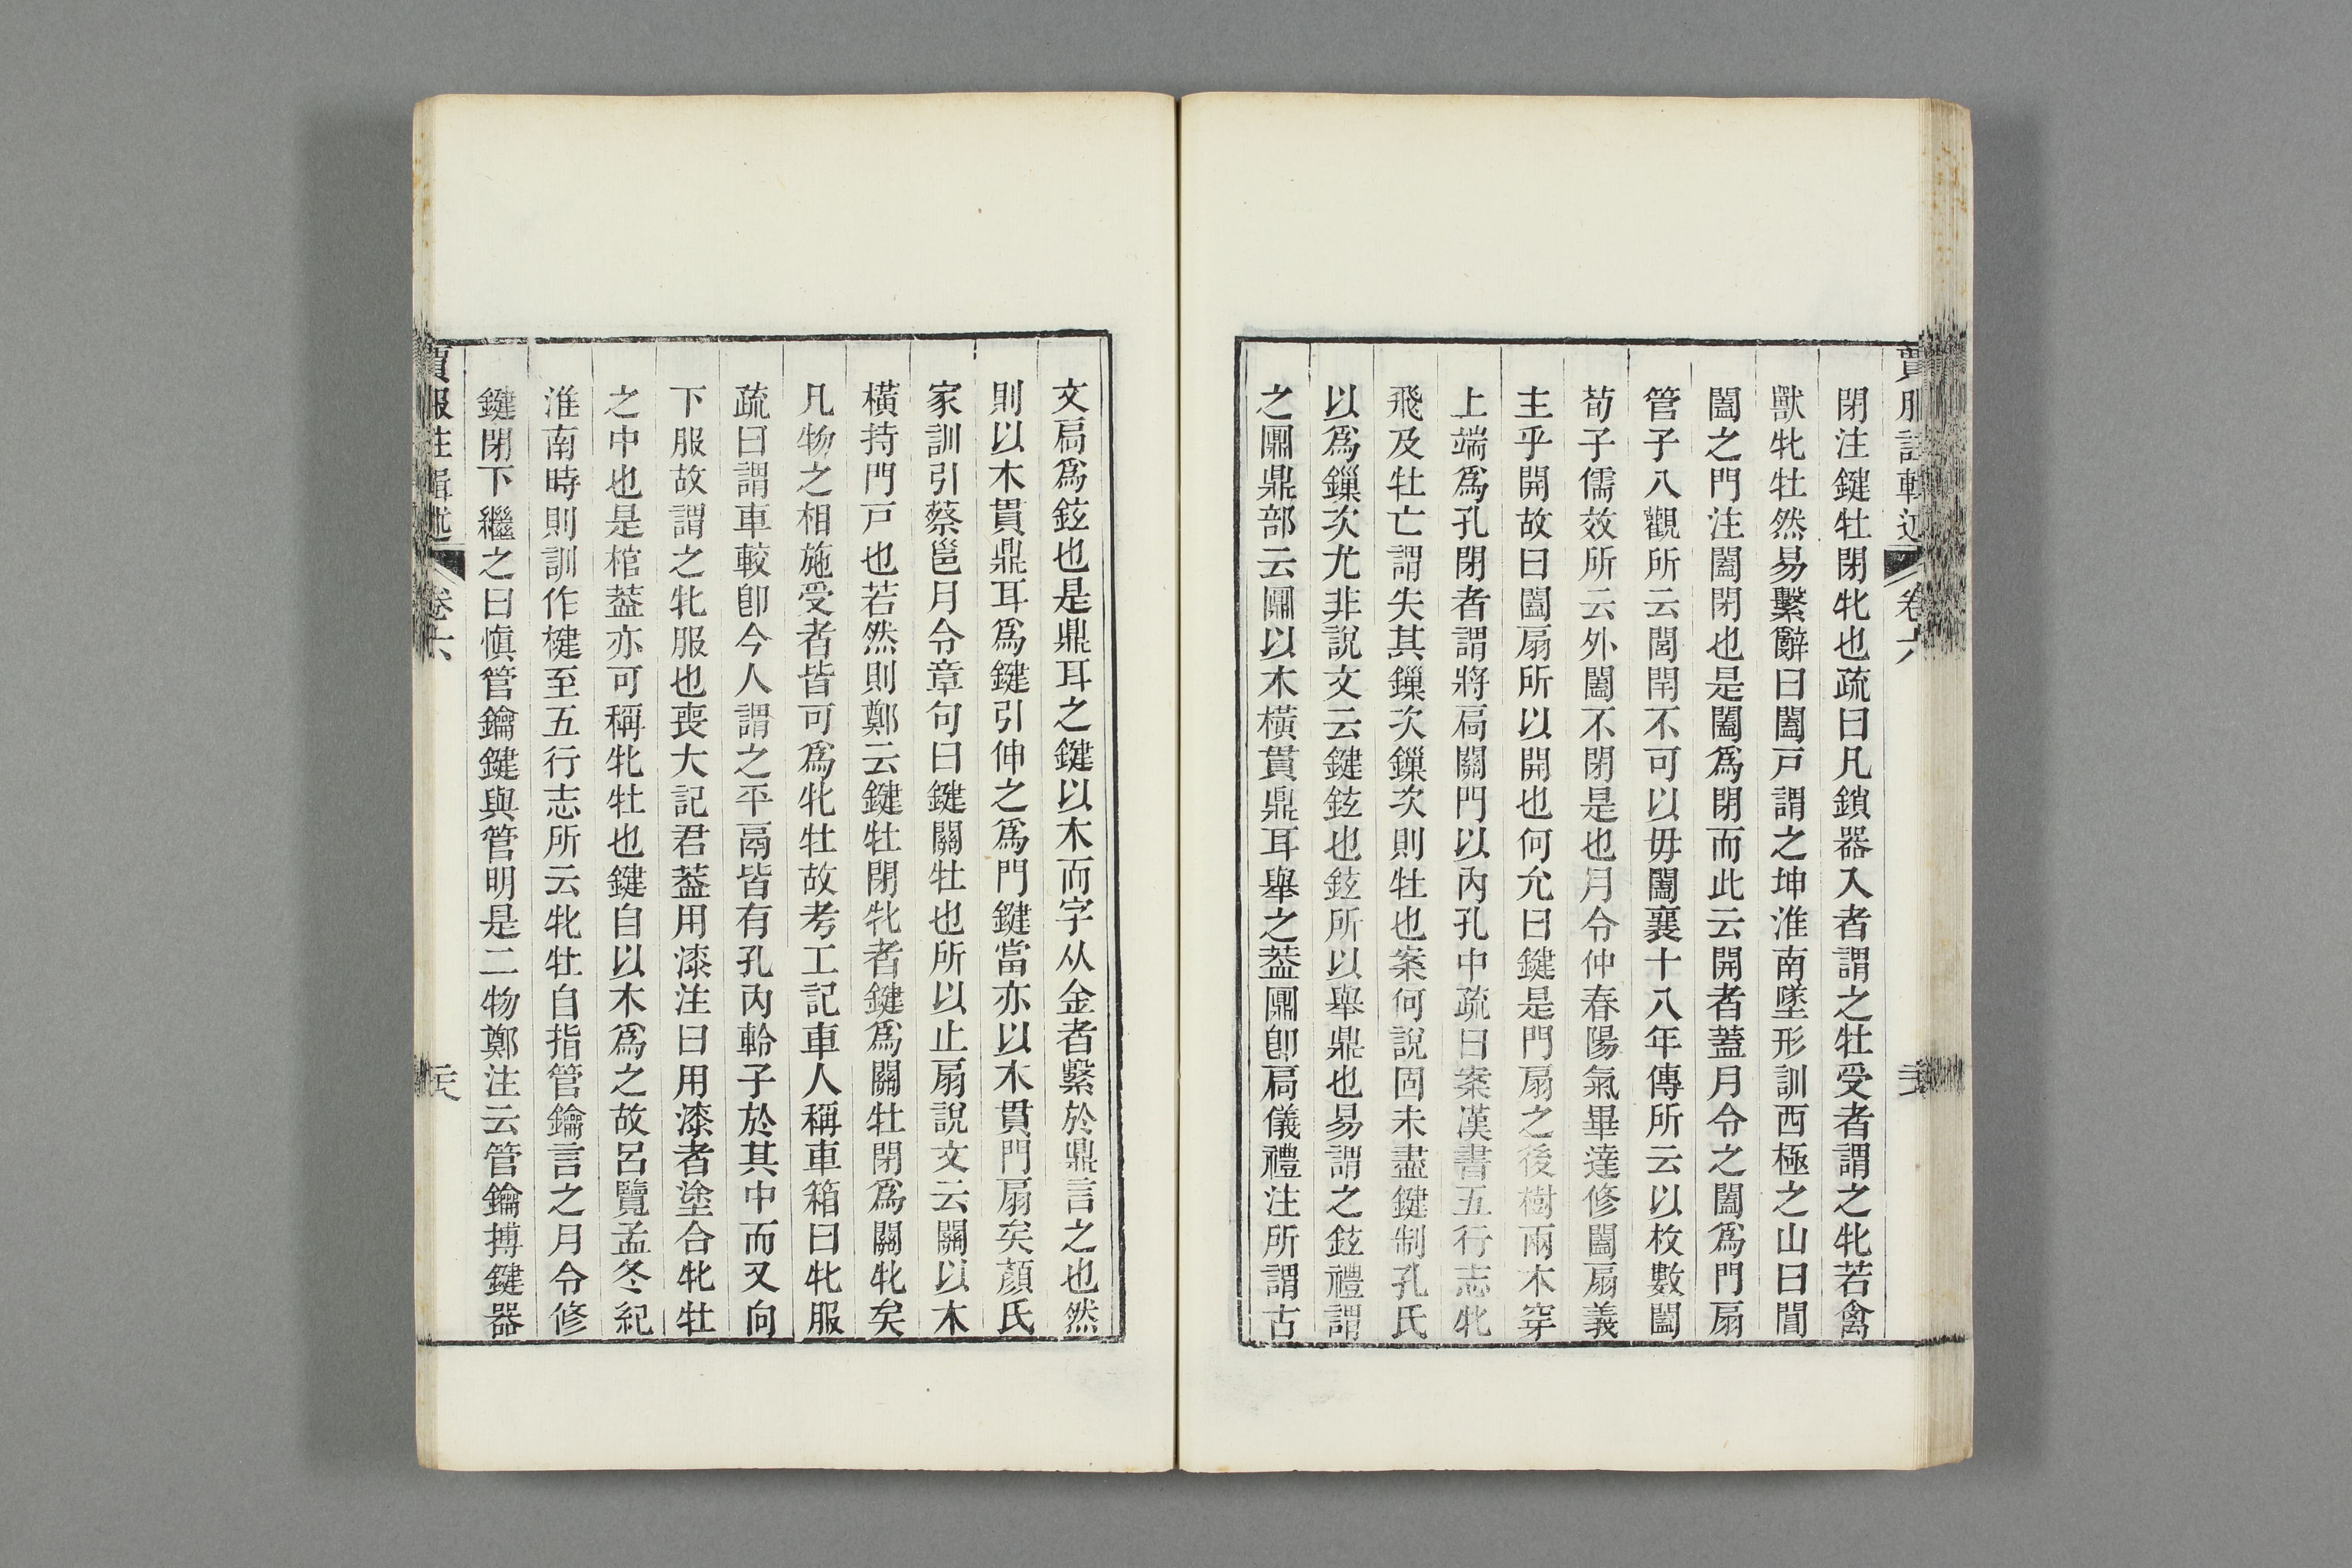 閉注鍵牡閉牝也疏曰凡鎖器入者謂之牡受者謂之牝若禽
獸牝牡然易繫辭曰闔戸謂之坤淮南墬形訓西極之山曰閶
闔之門注闔閉也是闔爲閉而此云開者蓋月令之闔爲門扇
管子八觀所云閭閈不可以毋闔襄十八年傳所云以枚數闔
荀子儒效所云外闔不閉是也月令仲春陽氣畢達修闔扇義
主乎開故曰闔扇所以開也何允曰鍵是門扇之後樹兩木穿
上端爲孔閉者謂將扃關門以內孔中疏曰案漢書五行志牝
飛及牡亡謂失其鏁次鏁次則牡也案何說固未盡鍵制孔氏
以爲鏁次尤非說文云鍵鉉也鉉所以舉鼎也易謂之鉉禮謂
之鼏鼎部云鼏以木橫貫鼎耳舉之葢鼏卽扃儀禮注所謂古
賈服注輯述 卷六
文扃爲鉉也是鼎耳之鍵以木而字从金者繫於鼎言之也然
則以木貫鼎耳爲鍵引伸之爲門鍵當亦以木貫門扇矣顏氏
家訓引蔡邕月令章句曰鍵關牡也所以止扇說文云關以木
橫持門戸也若然則鄭云鍵牡閉牝者鍵爲關牡閉爲關牝矣
凡物之相施受者皆可爲牝牡故考工記車人稱車箱曰牝服
疏曰謂車較卽今人謂之平鬲皆有孔內軨子於其中而又向
下服故謂之牝服也喪大記君葢用漆注曰用漆者塗合牝牡
之中也是棺葢亦可稱牝牡也鍵自以木爲之故呂覽孟冬紀
淮南時則訓作楗至五行志所云牝牡自指管鑰言之月令修
鍵閉下繼之曰愼管鑰鍵與管明是二物鄭注云管鑰搏鍵器
賈服注輯述 卷六